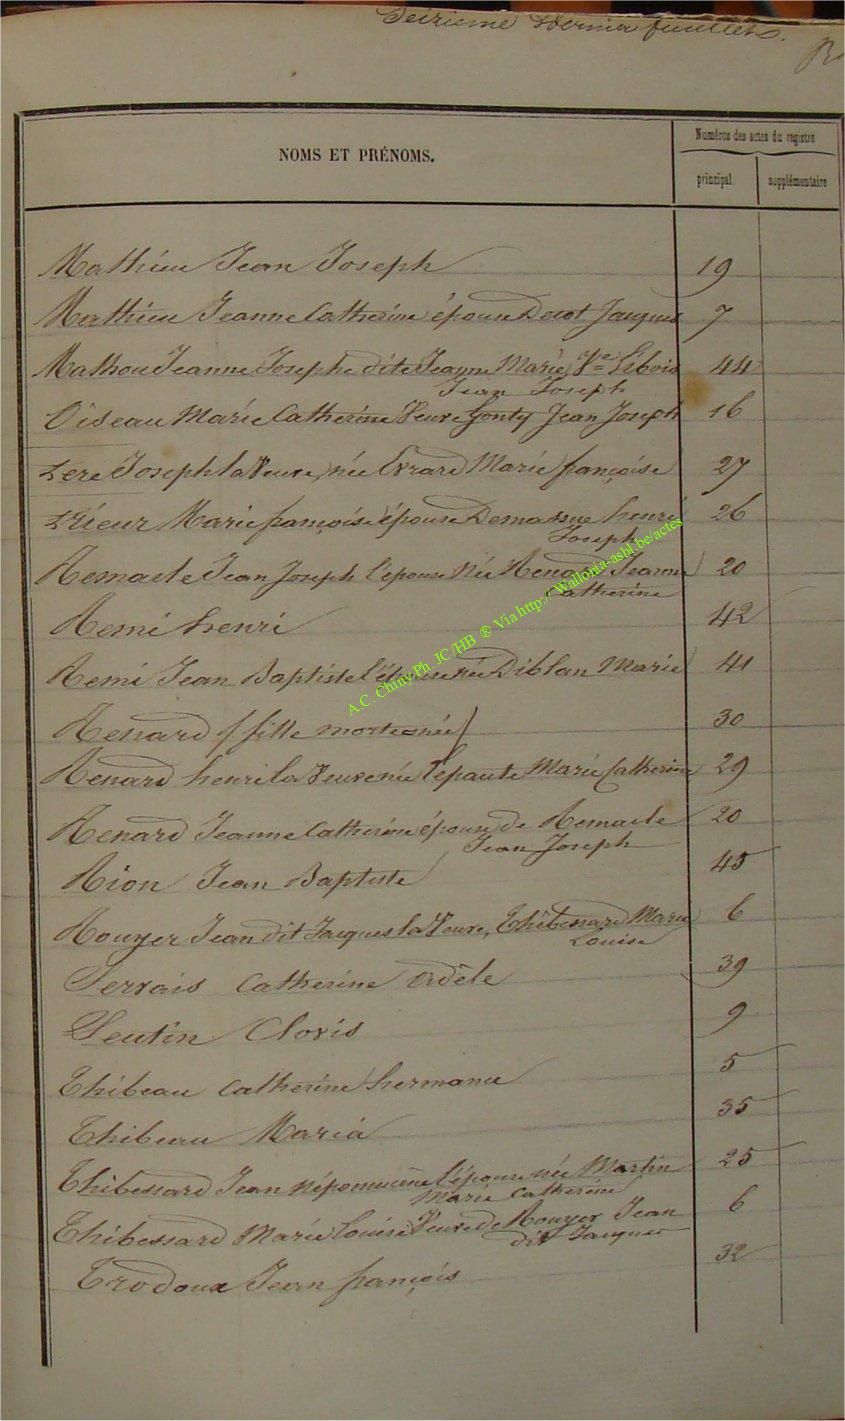 Seizième et dernier feuillets.
Numéros des actes du registre
NOMS ET PRÉNOMS.
principal. supplémentaire
Mathieu Jean Joseph 19
Mathieu Jeanne Catherine épouse Jacques 7
Mathou Jeanne Josephe dite Jeanne Marie Ve Libois 44
Jean Joseph
Oiseau Marie Catherine Veuve Gonty Jean Joseph 16
Père Joseph la Veuve, née Evrard Marie françoise 27
Prieur Marie françoise épouse Demasy henri 26
Joseph
Remacle Jean Joseph l'épouse Née Renard Jeanne 20
Catherine
Remi henri 42
Remi Jean Baptiste l'épouse née Diblan Marie 41
Renard (fille mort-née) 30
Renard henri la Veuve née Lepaute Marie Catherine 29
Renard Jeanne Catherine épouse de Remacle 20
Jean Joseph
Rion Jean Baptiste 45
Rouyer Jean dit Jacques la Veuve, Thibessard Marie 6
Louise
Servais Catherine Adèle 39
Seutin Clovis 9
Thibeau Catherine hermance 5
Thibeau Maria 35
Thibessard Jean Népomucène l'épouse née Martin 25
Marie Catherine
Thibessard Marie Louise Veuve de Rouyer Jean 6
dit Jacques
Trodoux Jean françois 32
A.C. Chiny Ph JC/HB ® Via http://Wallonia-asbl.be/actes